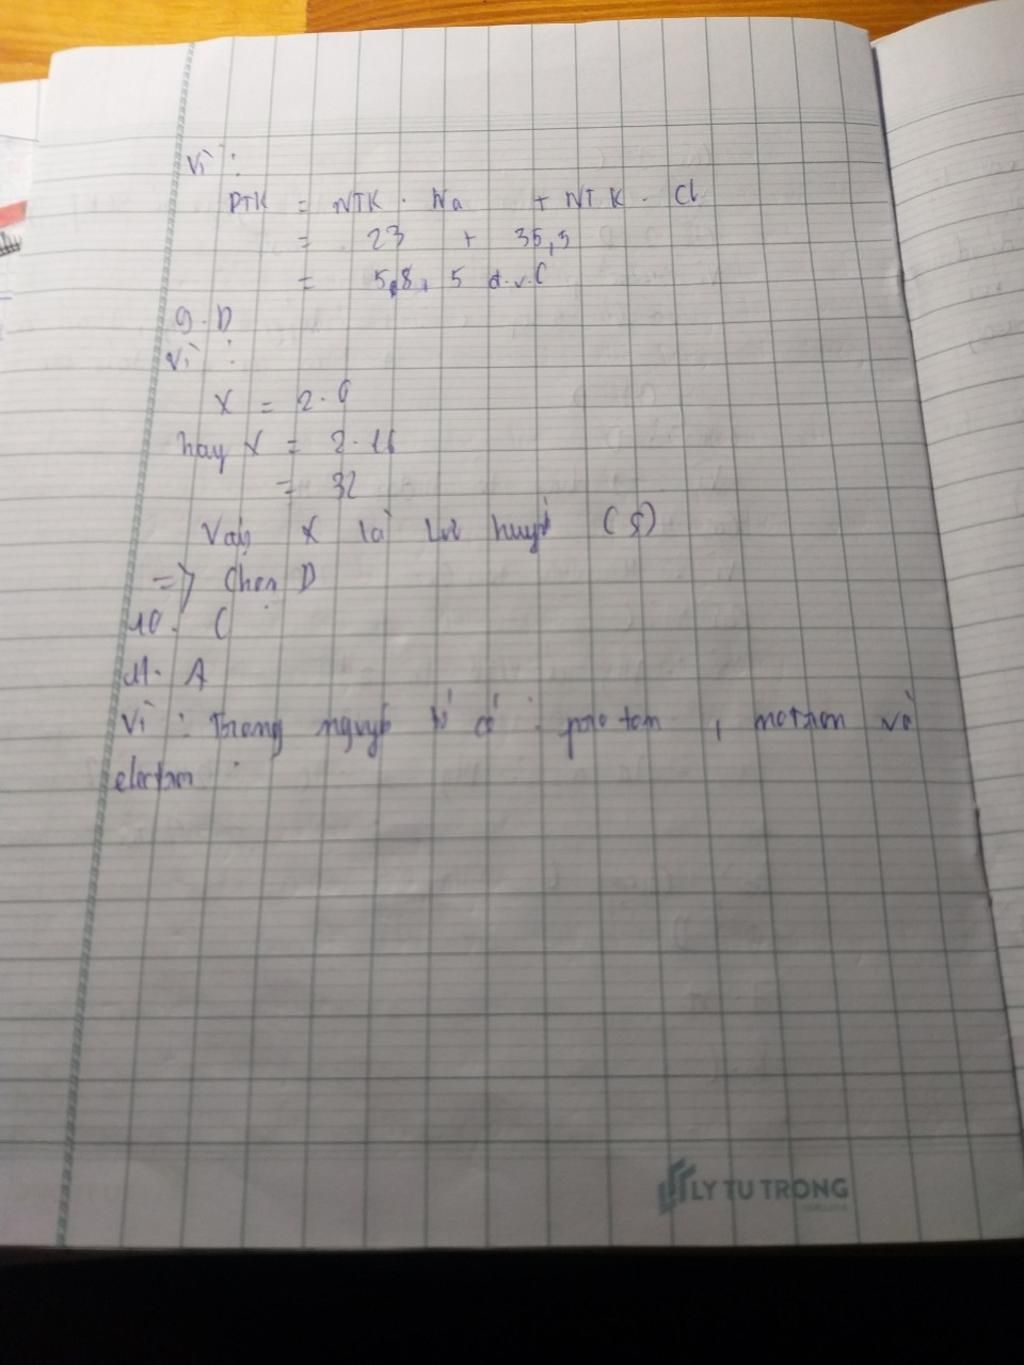 Vì :
PTK = NTK . Na + NTK . Cl
= 23 + 35,5
= 58,5 đ.v.C
9. D
Vì :
X = 2.O
hay X = 2.16
= 32
Vậy X là Lưu huỳnh (S)
=> Chọn D
10. C
11. A
Vì : Trong nguyên tử có : proton , notron và
electron
LY TU TRONG